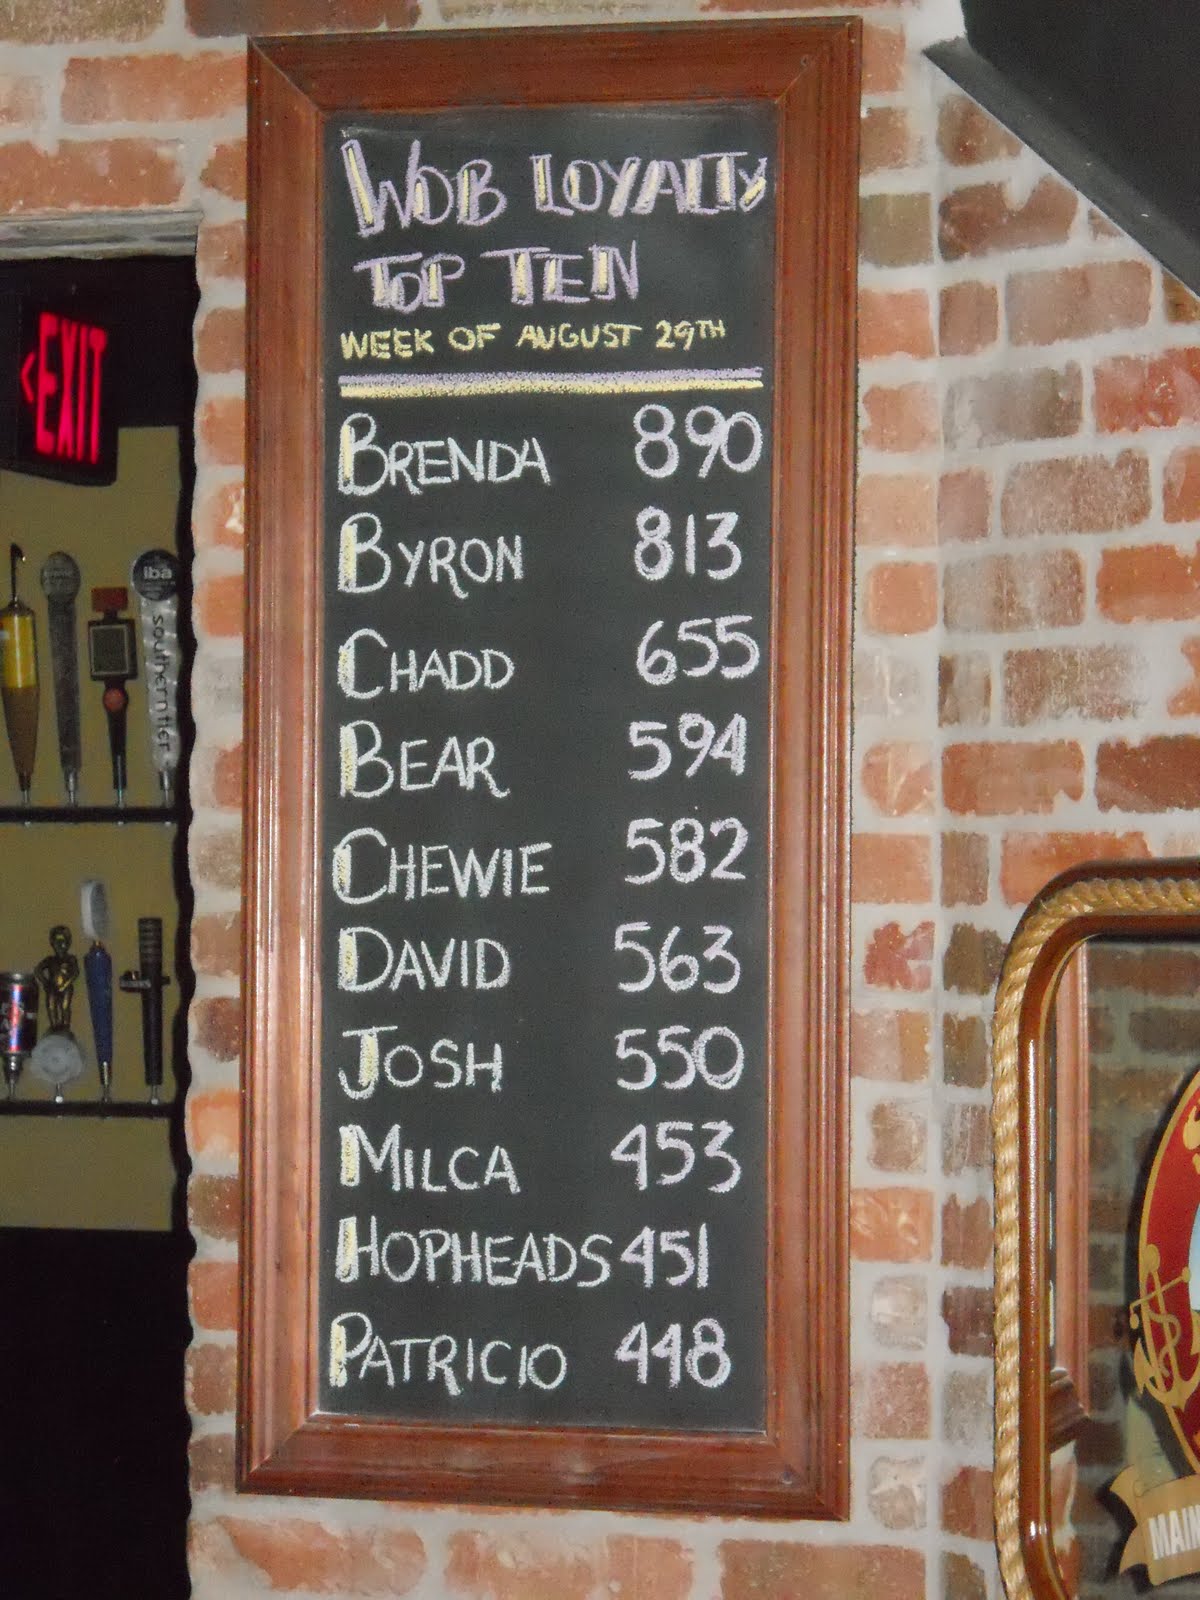 WOB LOYALTY
TOP TEN
WEEK OF AUGUST 29TH
BRENDA 890
BYRON 813
CHADD 655
BEAR 594
CHEWIE 582
DAVID 563
JOSH 550
MILCA 453
HOPHEADS 451
PATRICIO 448
EXIT
iba
southerntier
MAIN